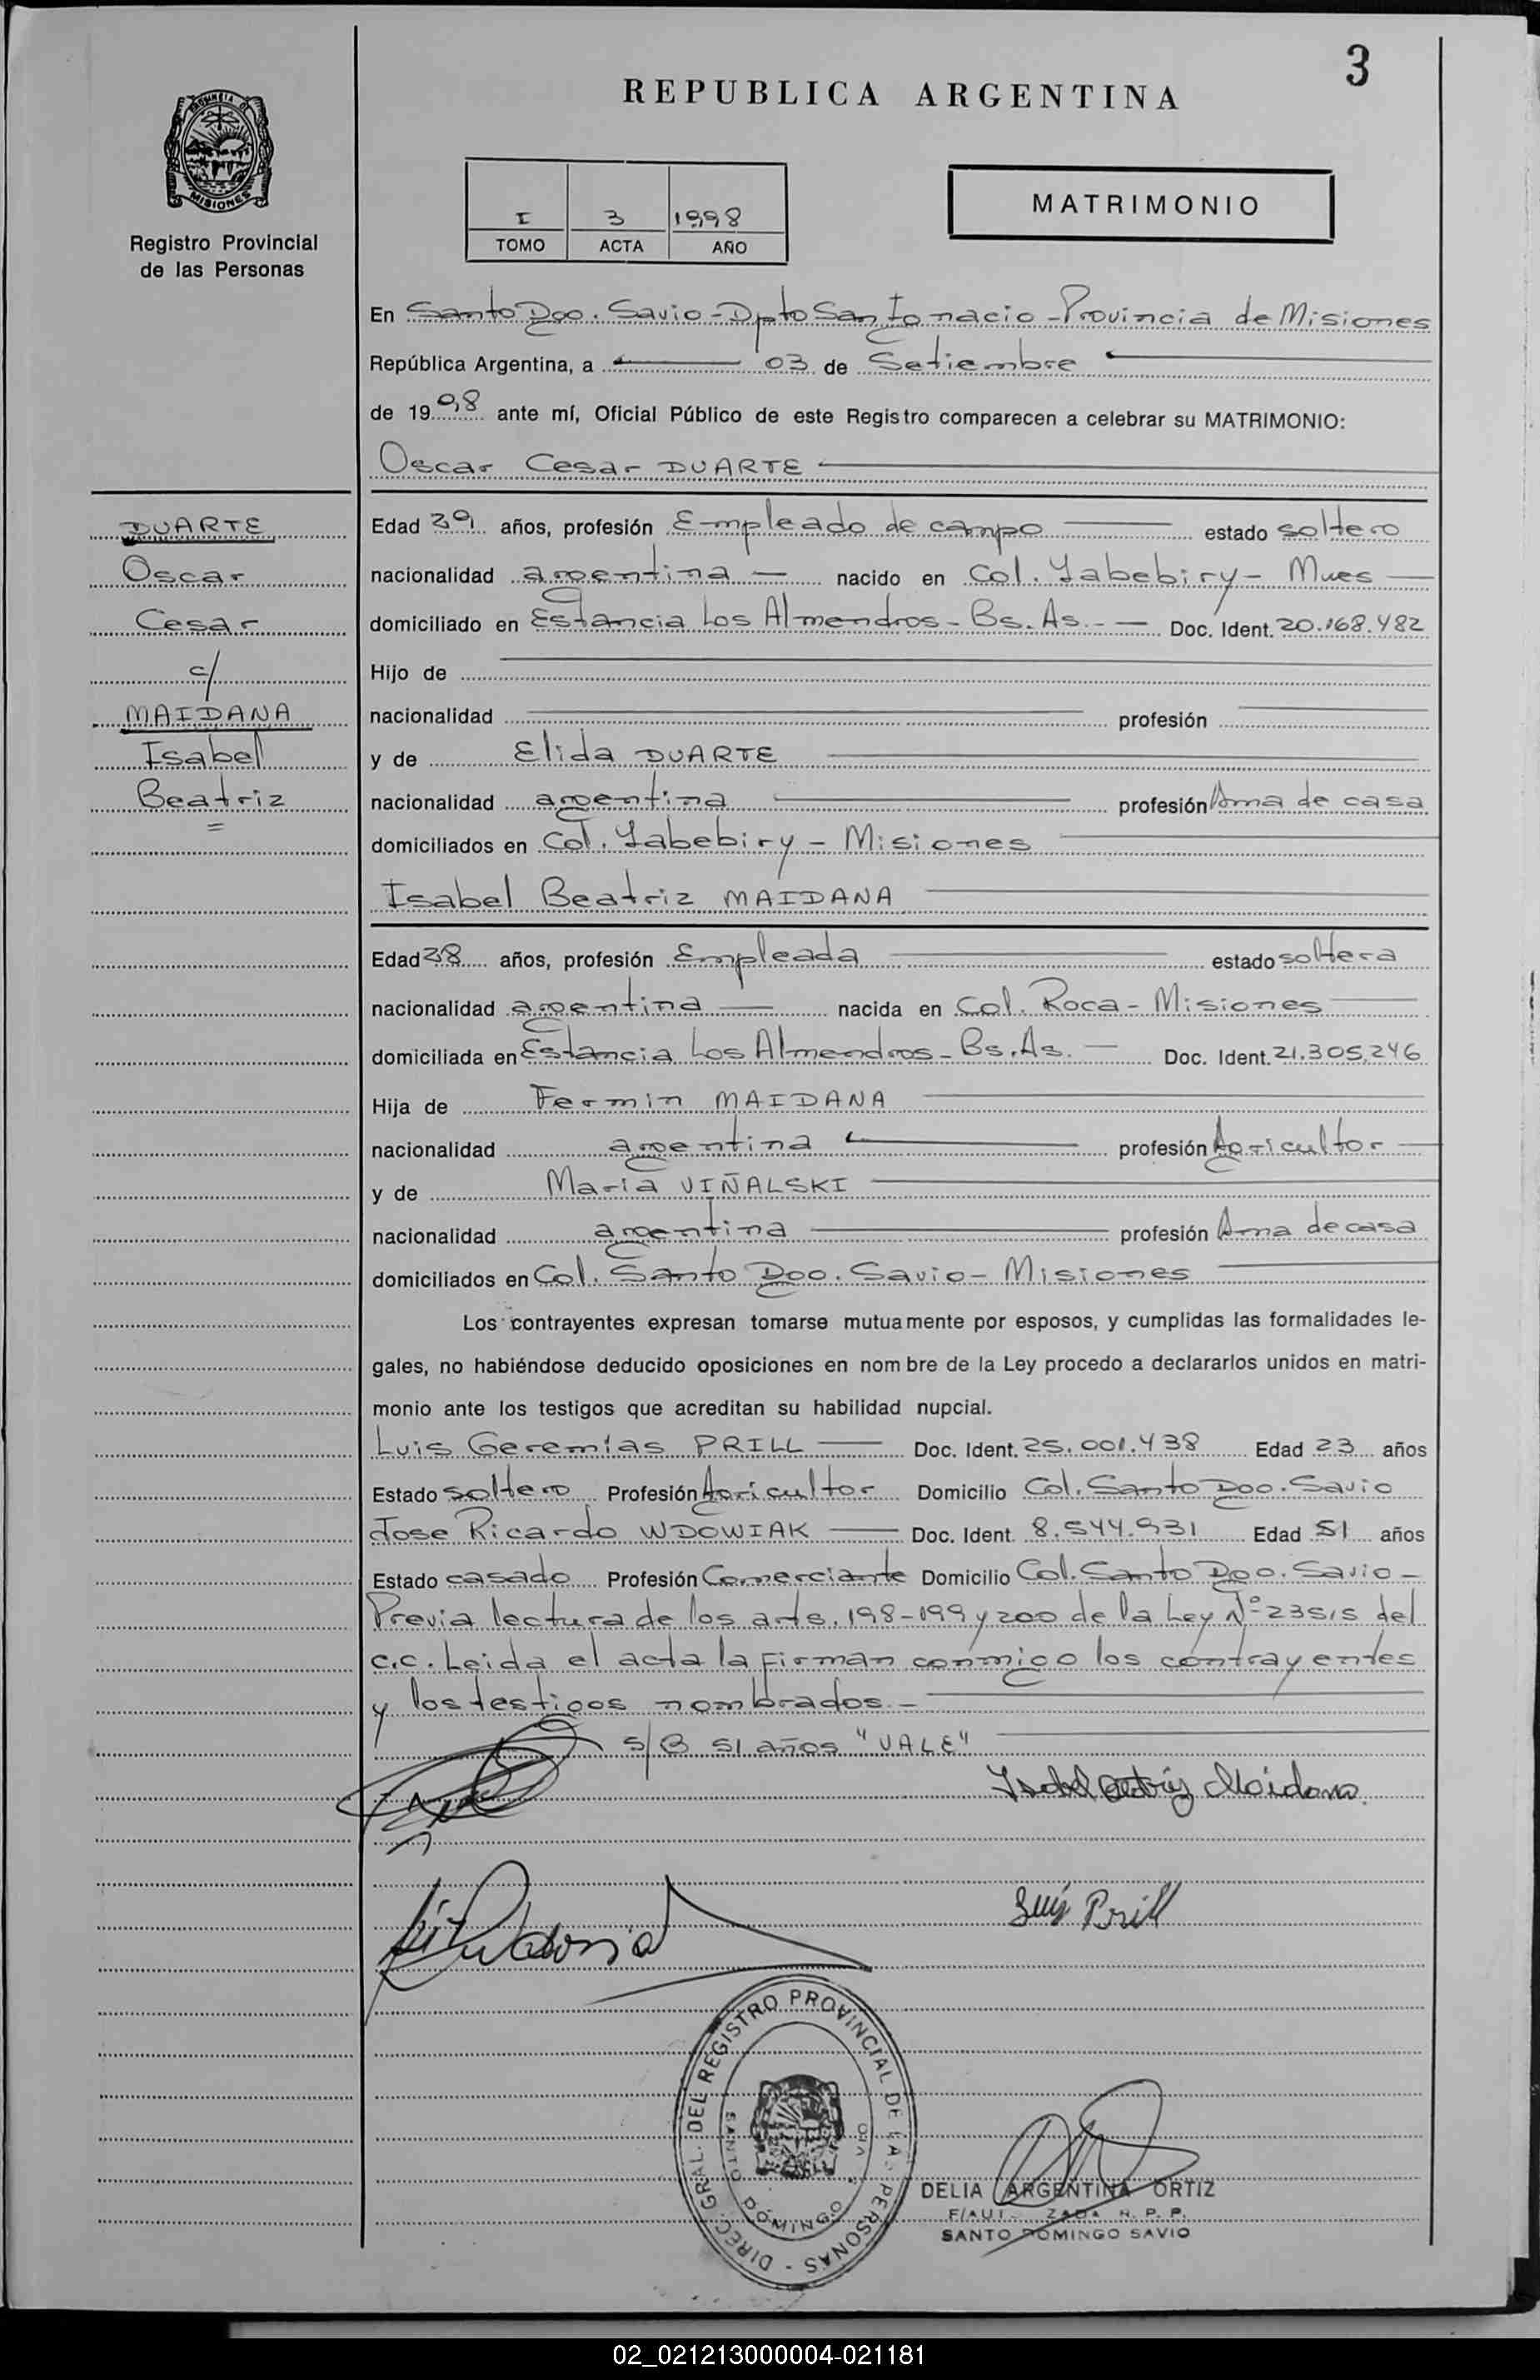 3
REPUBLICA ARGENTINA
PROVINCIA DE
MISIONES
Registro Provincial
de las Personas
I 3 1998
TOMO ACTA AÑO
MATRIMONIO
En Santo Dgo. Savio - Dpto San Ignacio - Provincia de Misiones
República Argentina, a 03 de Setiembre
de 1998 ante mí, Oficial Público de este Registro comparecen a celebrar su MATRIMONIO:
Oscar Cesar DUARTE
DUARTE
Oscar
Cesar
c/
MAIDANA
Isabel
Beatriz
=
Edad 29 años, profesión Empleado de campo estado soltero
nacionalidad argentina — nacido en Col. Yabebiry - Mnes
domiciliado en Estancia Los Almendros - Bs. As. - Doc. Ident. 20.168.482
Hijo de
nacionalidad profesión
y de Elida DUARTE
nacionalidad argentina profesión Ama de casa
domiciliados en Col. Yabebiry - Misiones
Isabel Beatriz MAIDANA
Edad 28 años, profesión Empleada estado soltera
nacionalidad argentina — nacida en Col. Roca - Misiones
domiciliada en Estancia Los Almendros - Bs. As. — Doc. Ident. 21.305.246
Hija de Fermin MAIDANA
nacionalidad argentina profesión Agricultor
y de Maria VIÑALSKI
nacionalidad argentina profesión Ama de casa
domiciliados en Col. Santo Dgo. Savio - Misiones
Los contrayentes expresan tomarse mutuamente por esposos, y cumplidas las formalidades le-
gales, no habiéndose deducido oposiciones en nombre de la Ley procedo a declararlos unidos en matri-
monio ante los testigos que acreditan su habilidad nupcial.
Luis Geremías PRILL — Doc. Ident. 25.001.438 Edad 23 años
Estado soltero Profesión Agricultor Domicilio Col. Santo Dgo. Savio
Jose Ricardo WDOWIAK — Doc. Ident. 8.544.931 Edad 51 años
Estado casado Profesión Comerciante Domicilio Col. Santo Dgo. Savio -
Previa lectura de los arts. 198-199 y 200 de la Ley Nº 23515 del
c.c. Leida el acta la firman conmigo los contrayentes
y los testigos nombrados. -
S/B 51 años "VALE"
Isabel Beatriz Maidana
Luis Prill
DIREC. GRAL. DEL REGISTRO PROVINCIAL DE LAS PERSONAS -
SANTO DOMINGO VIO
DELIA ARGENTINA ORTIZ
R. P. P.
SANTO DOMINGO SAVIO
02_021213000004-021181